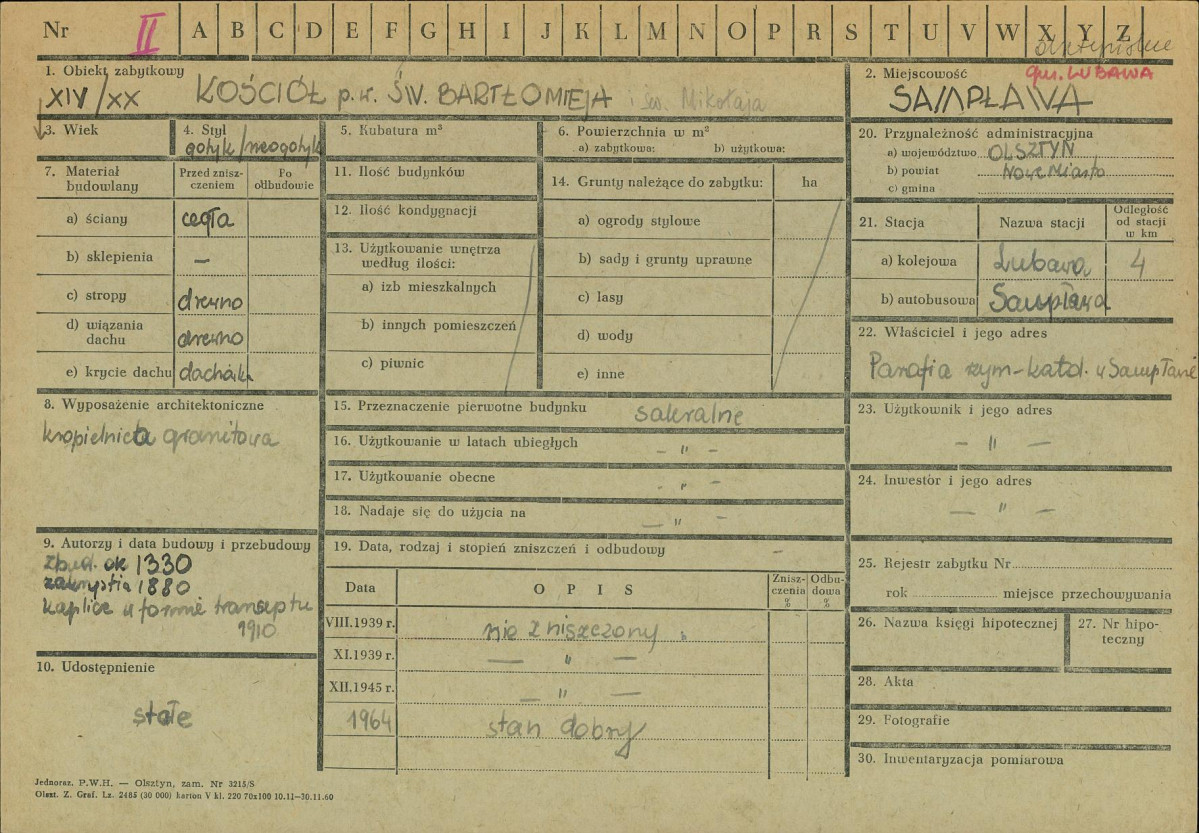 Nr II A B C D E F G H I J K L M N O P R S T U V W X Y Z
1. Obiekt zabytkowy
XIV/XX KOŚCIÓŁ p.w. ŚW. BARTŁOMIEJA i św. Mikołaja
2. Miejscowość gm. LUBAWA
SAMPŁAWA
3. Wiek
4. Styl
gotyk/neogotyk
5. Kubatura m³
6. Powierzchnia w m²
a) zabytkowa: b) użytkowa:
7. Materiał budowlany
Przed zniszczeniem
Po odbudowie
a) ściany cegła
b) sklepienia –
c) stropy drewno
d) wiązania dachu drewno
e) krycie dachu dachówka
8. Wyposażenie architektoniczne
kropielnica granitowa
9. Autorzy i data budowy i przebudowy
zbud. ok 1330
zakrystia 1880
kaplice w formie transeptu
1910
10. Udostępnienie
stałe
11. Ilość budynków
12. Ilość kondygnacji
13. Użytkowanie wnętrza według ilości:
a) izb mieszkalnych
b) innych pomieszczeń
c) piwnic
14. Grunty należące do zabytku: ha
a) ogrody stylowe
b) sady i grunty uprawne
c) lasy
d) wody
e) inne
15. Przeznaczenie pierwotne budynku sakralne
16. Użytkowanie w latach ubiegłych – " –
17. Użytkowanie obecne – " –
18. Nadaje się do użycia na – " –
19. Data, rodzaj i stopień zniszczeń i odbudowy –
Data
OPIS
Zniszczenia %
Odbudowa %
VIII.1939 r. nie zniszczony
XI.1939 r. – " –
XII.1945 r. – " –
1964 stan dobry
20. Przynależność administracyjna
a) województwo OLSZTYN
b) powiat Nowe Miasto
c) gmina
21. Stacja
Nazwa stacji
Odległość od stacji w km
a) kolejowa Lubawa 4
b) autobusowa Sampława
22. Właściciel i jego adres
Parafia rzym-katol. w Sampławie
23. Użytkownik i jego adres
– " –
24. Inwestor i jego adres
– " –
25. Rejestr zabytku Nr
rok miejsce przechowywania
26. Nazwa księgi hipotecznej
27. Nr hipoteczny
28. Akta
29. Fotografie
30. Inwentaryzacja pomiarowa
Jednoraz. P.W.H. — Olsztyn, zam. Nr 3215/S
Olszt. Z. Graf. Lz. 2485 (30 000) karton V kl. 220 70x100 10.11—30.11.60